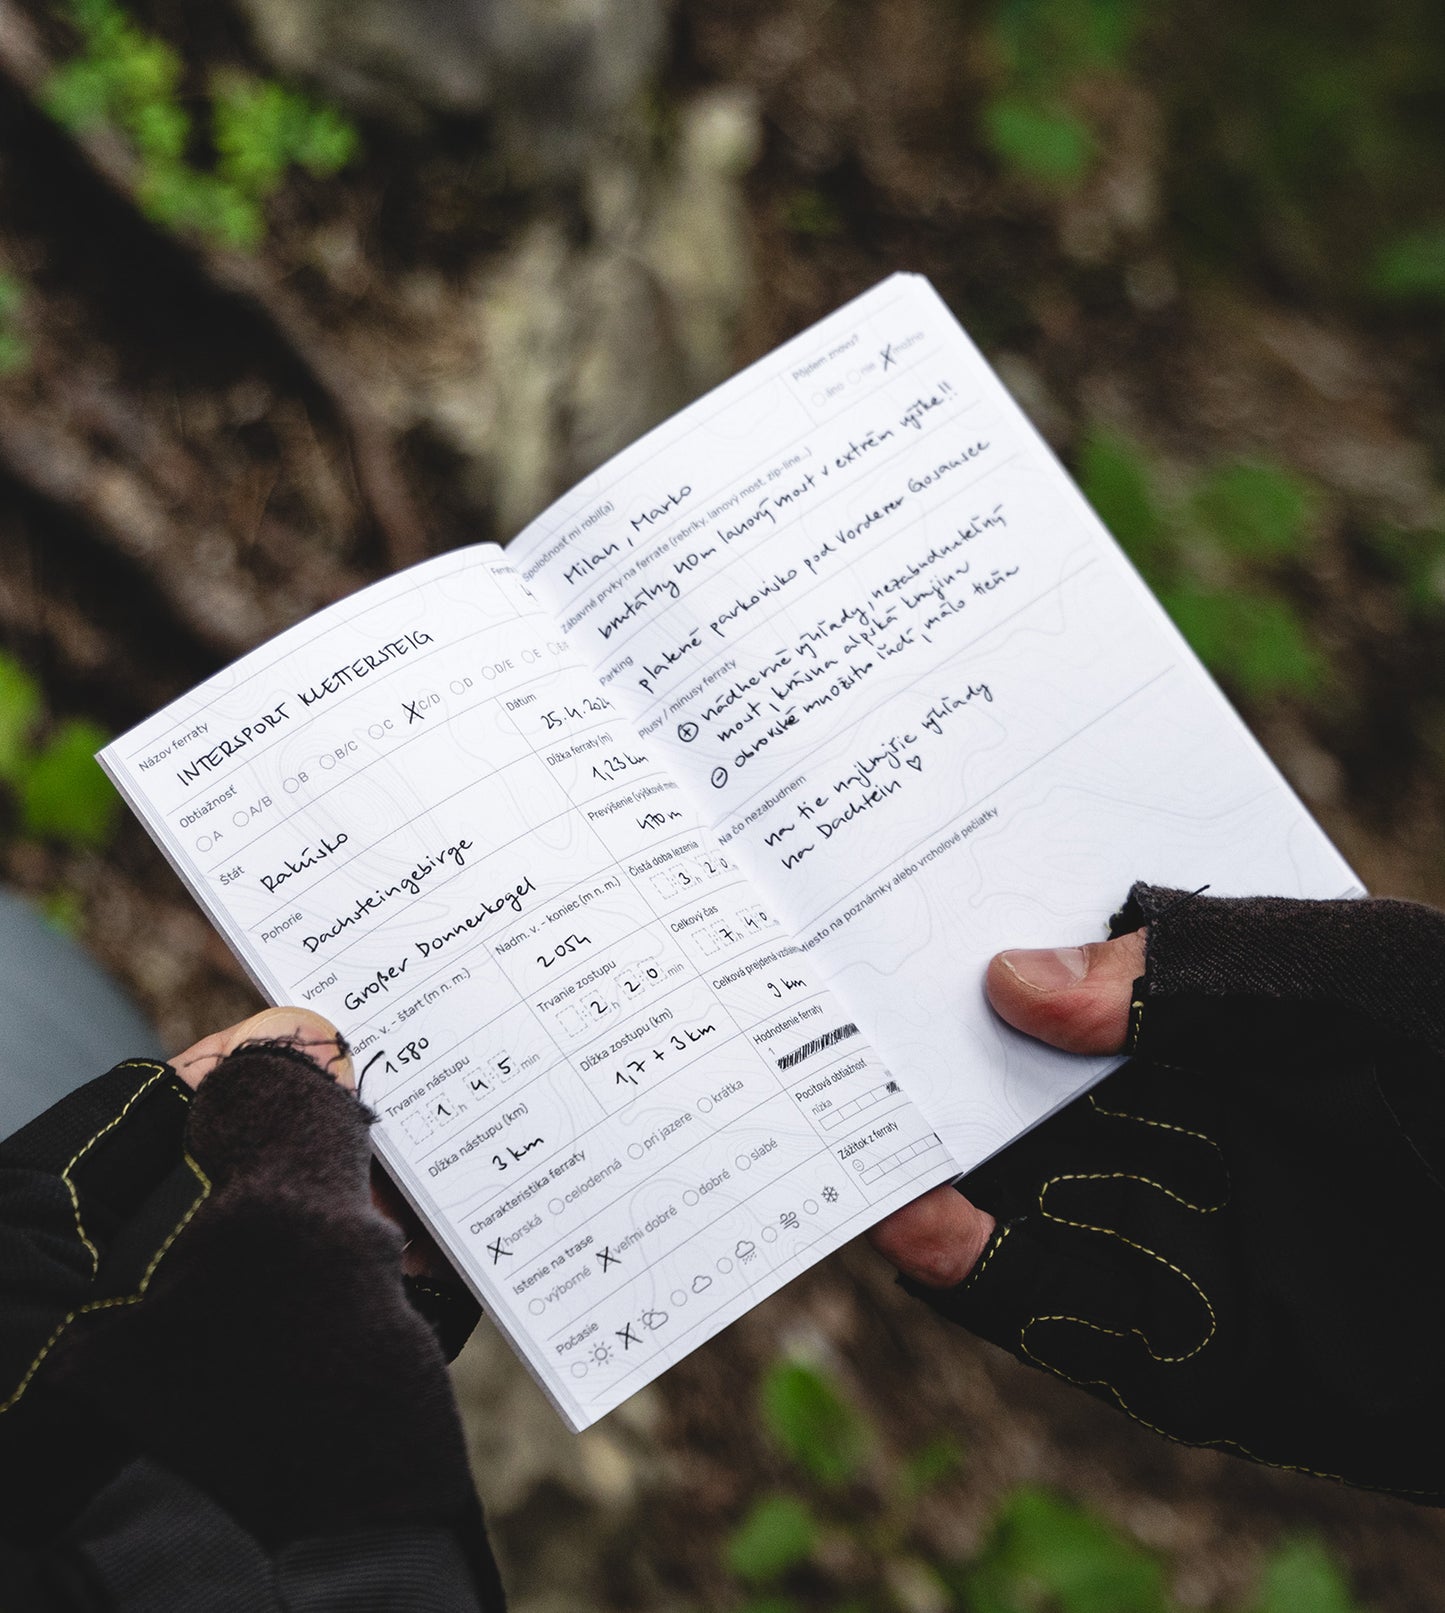 Názov ferraty
INTERSPORT KLETTERSTEIG
Obtiažnosť
A A/B B B/C C X C/D D D/E E
Štát
Rakúsko
Pohorie
Dachsteingebirge
Vrchol
Großer Donnerkogel
Nadm. v. - štart (m n. m.)
1580
Nadm. v. - koniec (m n. m.)
2054
Trvanie nástupu
1 h 45 min
Trvanie zostupu
2 h 20 min
Dĺžka nástupu (km)
3 km
Dĺžka zostupu (km)
1,7 + 3 km
Charakteristika ferraty
X horská celodenná pri jazere krátka
Istenie na trase
výborné X veľmi dobré dobré slabé
Počasie
X
Dátum
25.4.2024
Dĺžka ferraty (m)
1,23 km
Prevýšenie (výškové
470 m
Čistá doba lezenia
3 h 20
Celkový čas
7 h 40
Celková prejdená
9 km
Hodnotenie ferraty
1
Pocitová obtiažnosť
nízka
Zážitok z ferraty
Spoločnosť mi robil(a)
Milan, Marko
Pôjdem znovu?
áno nie X možno
Zábavné prvky na ferrate (rebríky, lanový most, zip-line...)
brutálny 40m lanový most v extrém výške!!
Parking
platené parkovisko pod Vorderer Gosausee
Plusy / mínusy ferraty
+ nádherné výhľady, nezabudnuteľný
most, krásna alpská krajina
- obrovské množstvo ľudí, málo tieňa
Na čo nezabudnem
na tie najkrajšie výhľady
na Dachstein ♡
Miesto na poznámky alebo vrcholové pečiatky